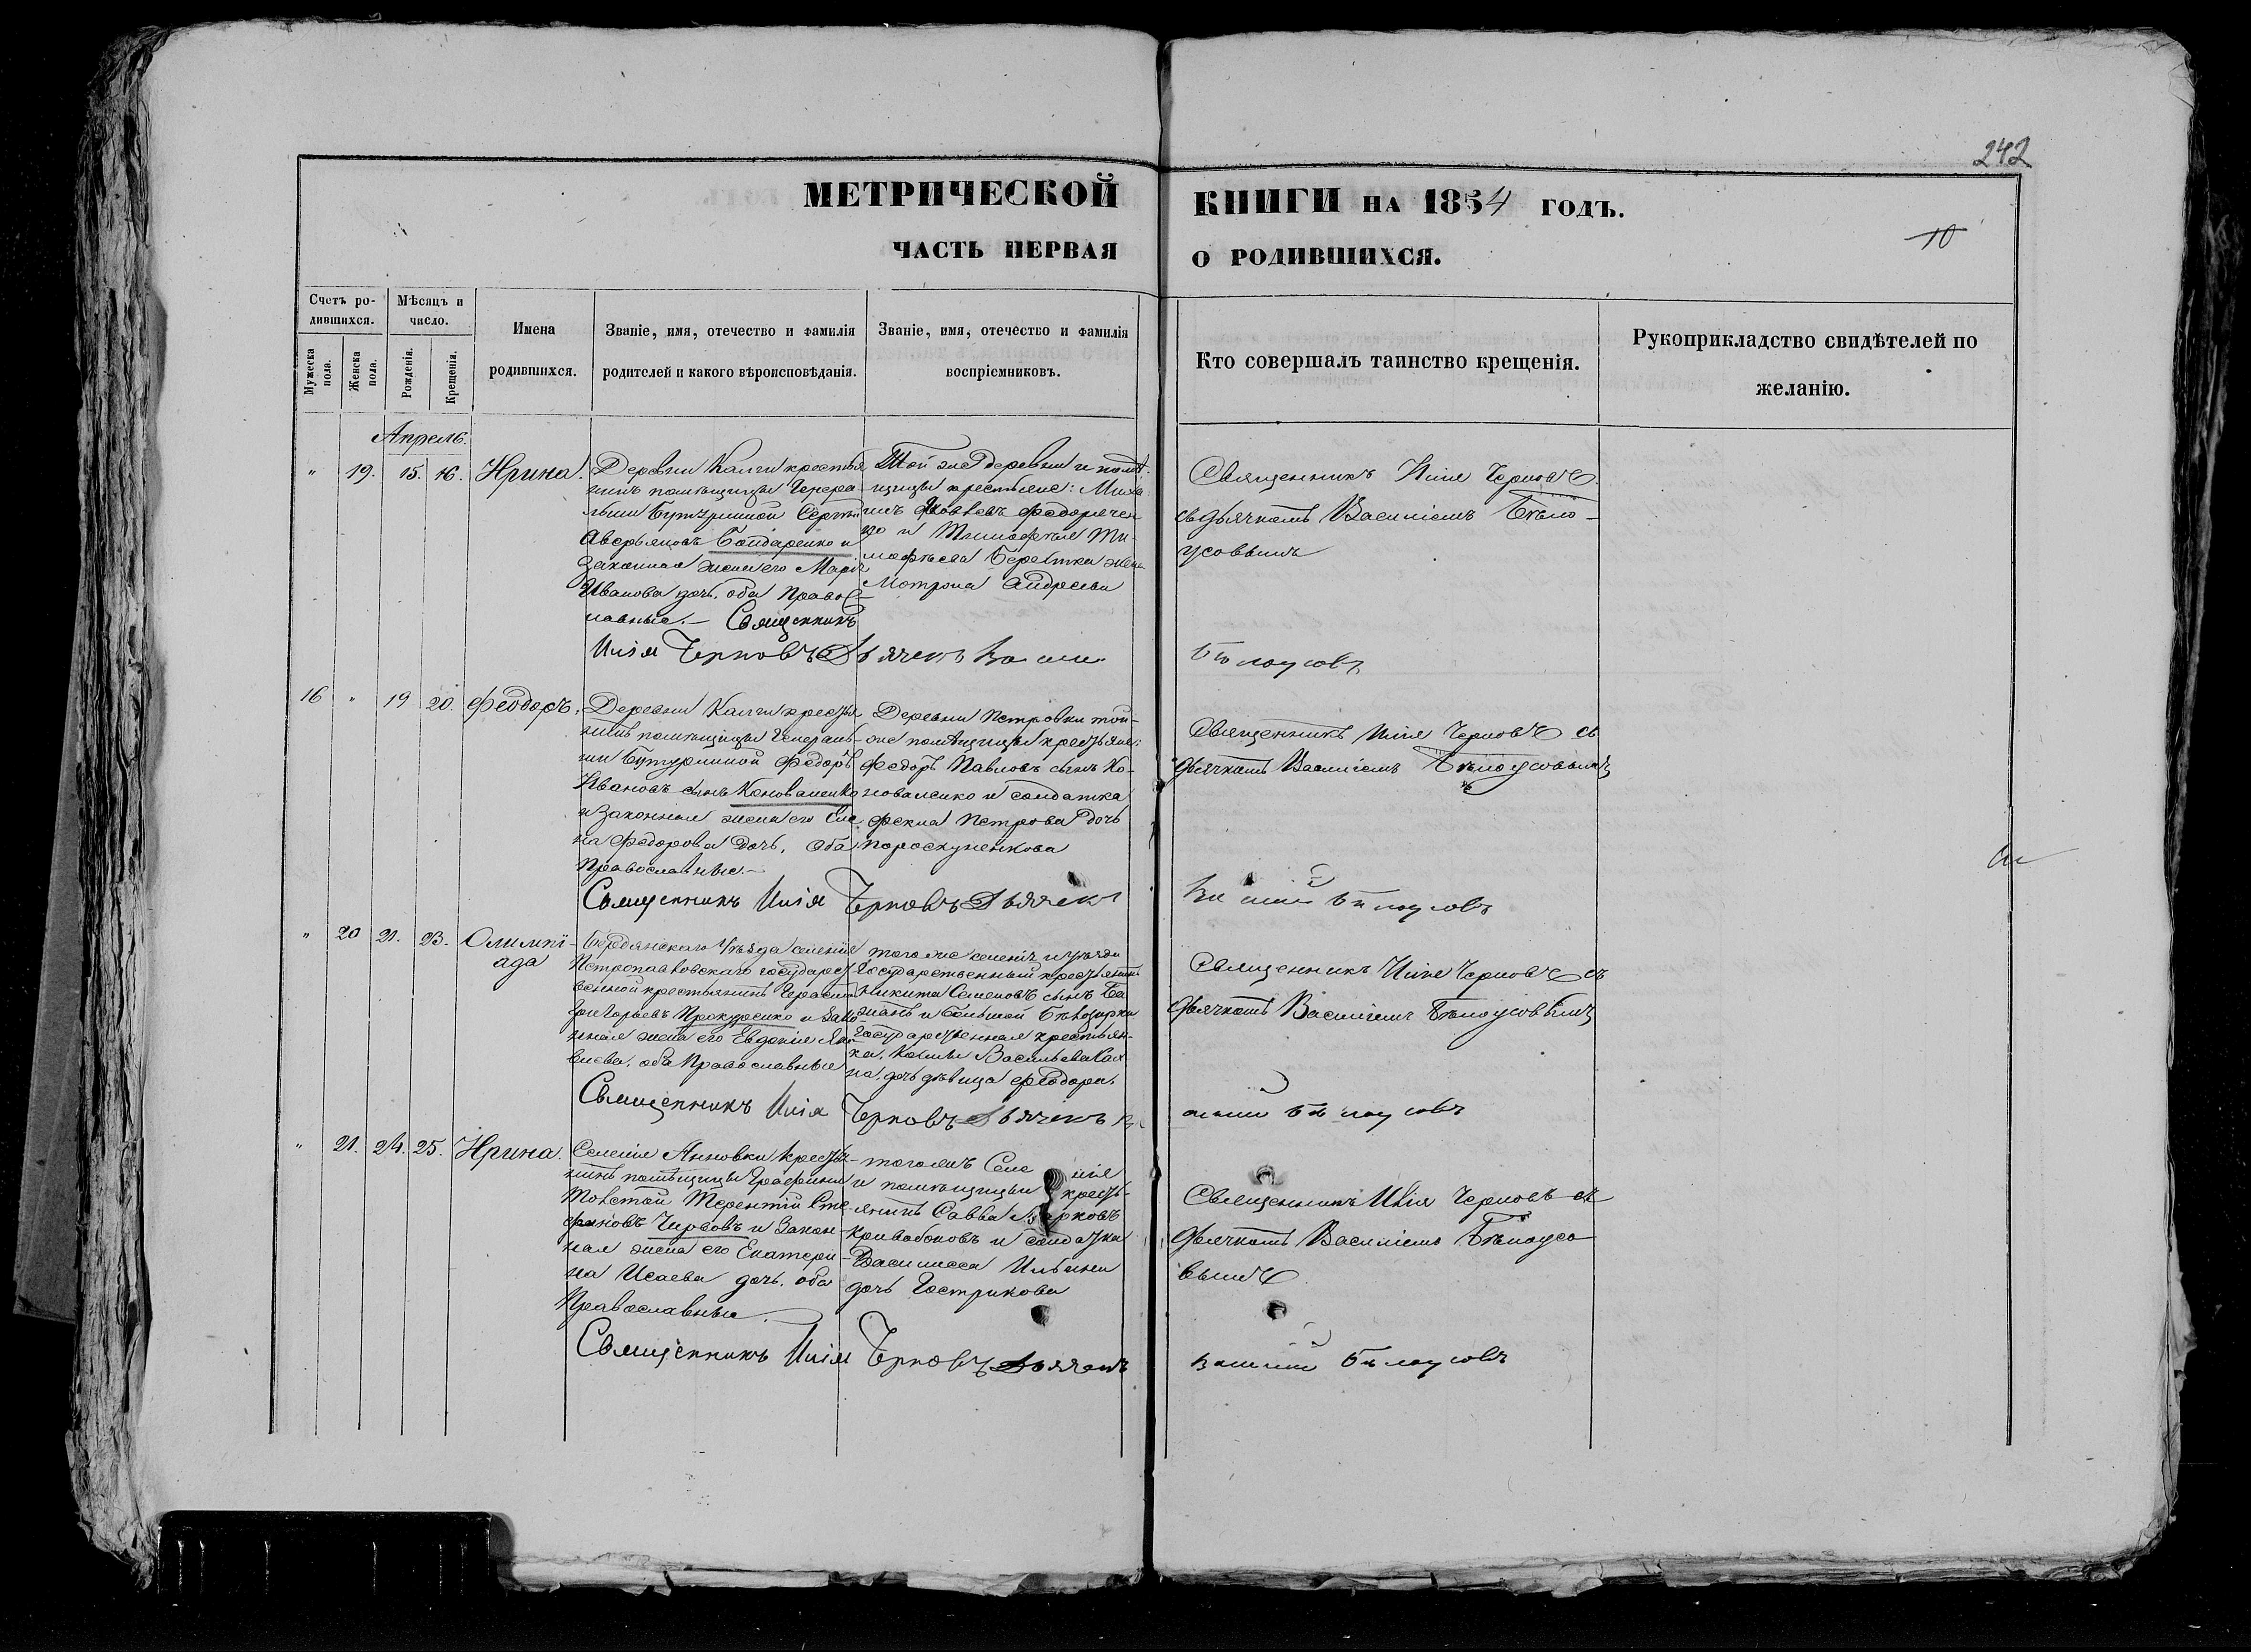 242
МЕТРИЧЕСКОЙ КНИГИ НА 1854 ГОДЪ.
10
ЧАСТЬ ПЕРВАЯ О РОДИВШИХСЯ.
Счетъ родившихся.
Мужеска пола.
Женска пола.
Мѣсяцъ и число.
Рожденія.
Крещенія.
Имена родившихся.
Званіе, имя, отечество и фамилія
родителей и какого вѣроисповѣданія.
Званіе, имя, отечество и фамилія
воспріемниковъ.
Кто совершалъ таинство крещенія.
Рукоприкладство свидѣтелей по
желанію.
Апрель.
" 19. 15. 16. Ирина.
Деревни крестья
нинъ помѣщицы Генера
льши Бутурлиной Сергѣй
Аверьяновъ Бондаренко и
Законная жена его Марія
Иванова дочь, оба Правос
лавные. — Священникъ
Илія Черновъ Дьячекъ
Той же деревни и помѣ
щицы крестьяне: Миха
илъ Федорчен
ко и Тимофѣя Ти
мофѣева жена
Мотрона Андреева
Священникъ Илія Черновъ
съ дьячкомъ Василіемъ Бѣло-
усовымъ
Бѣлоусовъ
16 " 19 20. Феодоръ.
Деревни крестья
нинъ помѣщицы Генераль-
ши Бутурлиной Федоръ
Ивановъ сынъ Коноваленко
и Законная жена его Еле
на Федорова дочь, оба
Православные. —
Священникъ Илія Черновъ Дьячекъ
Деревни Петровки той-
же помѣщицы крестьяне:
Федоръ Павловъ сынъ Ко-
новаленко и солдатка
Фекла Петрова дочь
Священникъ Илія Черновъ съ
дьячкомъ Василіемъ Бѣлоусовымъ
Василій Бѣлоусовъ
" 20 21. 23. Олимпі-
ада
Бердянскаго Уѣзда селенія
Петропавловскаго государст
венной крестьянинъ Герасимъ
Григорьевъ Прокуренко и Зако
нная жена его Евдокія
оба Православные
Священникъ Илія Черновъ Дьячекъ
того же селенія и уѣзда
Государственный крестьянинъ
Никита Семеновъ сынъ
и Большой Бѣлозерки
государственная крестьян-
ка, Васильева
дочь дѣвица Феодора.
Священникъ Илія Черновъ съ
дьячкомъ Василіемъ Бѣлоусовымъ
Бѣлоусовъ
" 21. 24. 25. Ирина.
Селенія Анновки крестья-
нинъ помѣщицы Графини
Толстой Терентій Сте
фановъ Чирвовъ и Закон-
ная жена его Екатери-
на Исаева дочь, оба
Православные.
Священникъ Илія Черновъ Дьячекъ
тогожъ Селенія
и помѣщицы кресть-
янинъ Савва Марковъ
Кривобоковъ и солдатка
Василисса Ильина
дочь Гострикова
Священникъ Илія Черновъ съ
дьячкомъ Василіемъ Бѣлоусо
вымъ
Василій Бѣлоусовъ